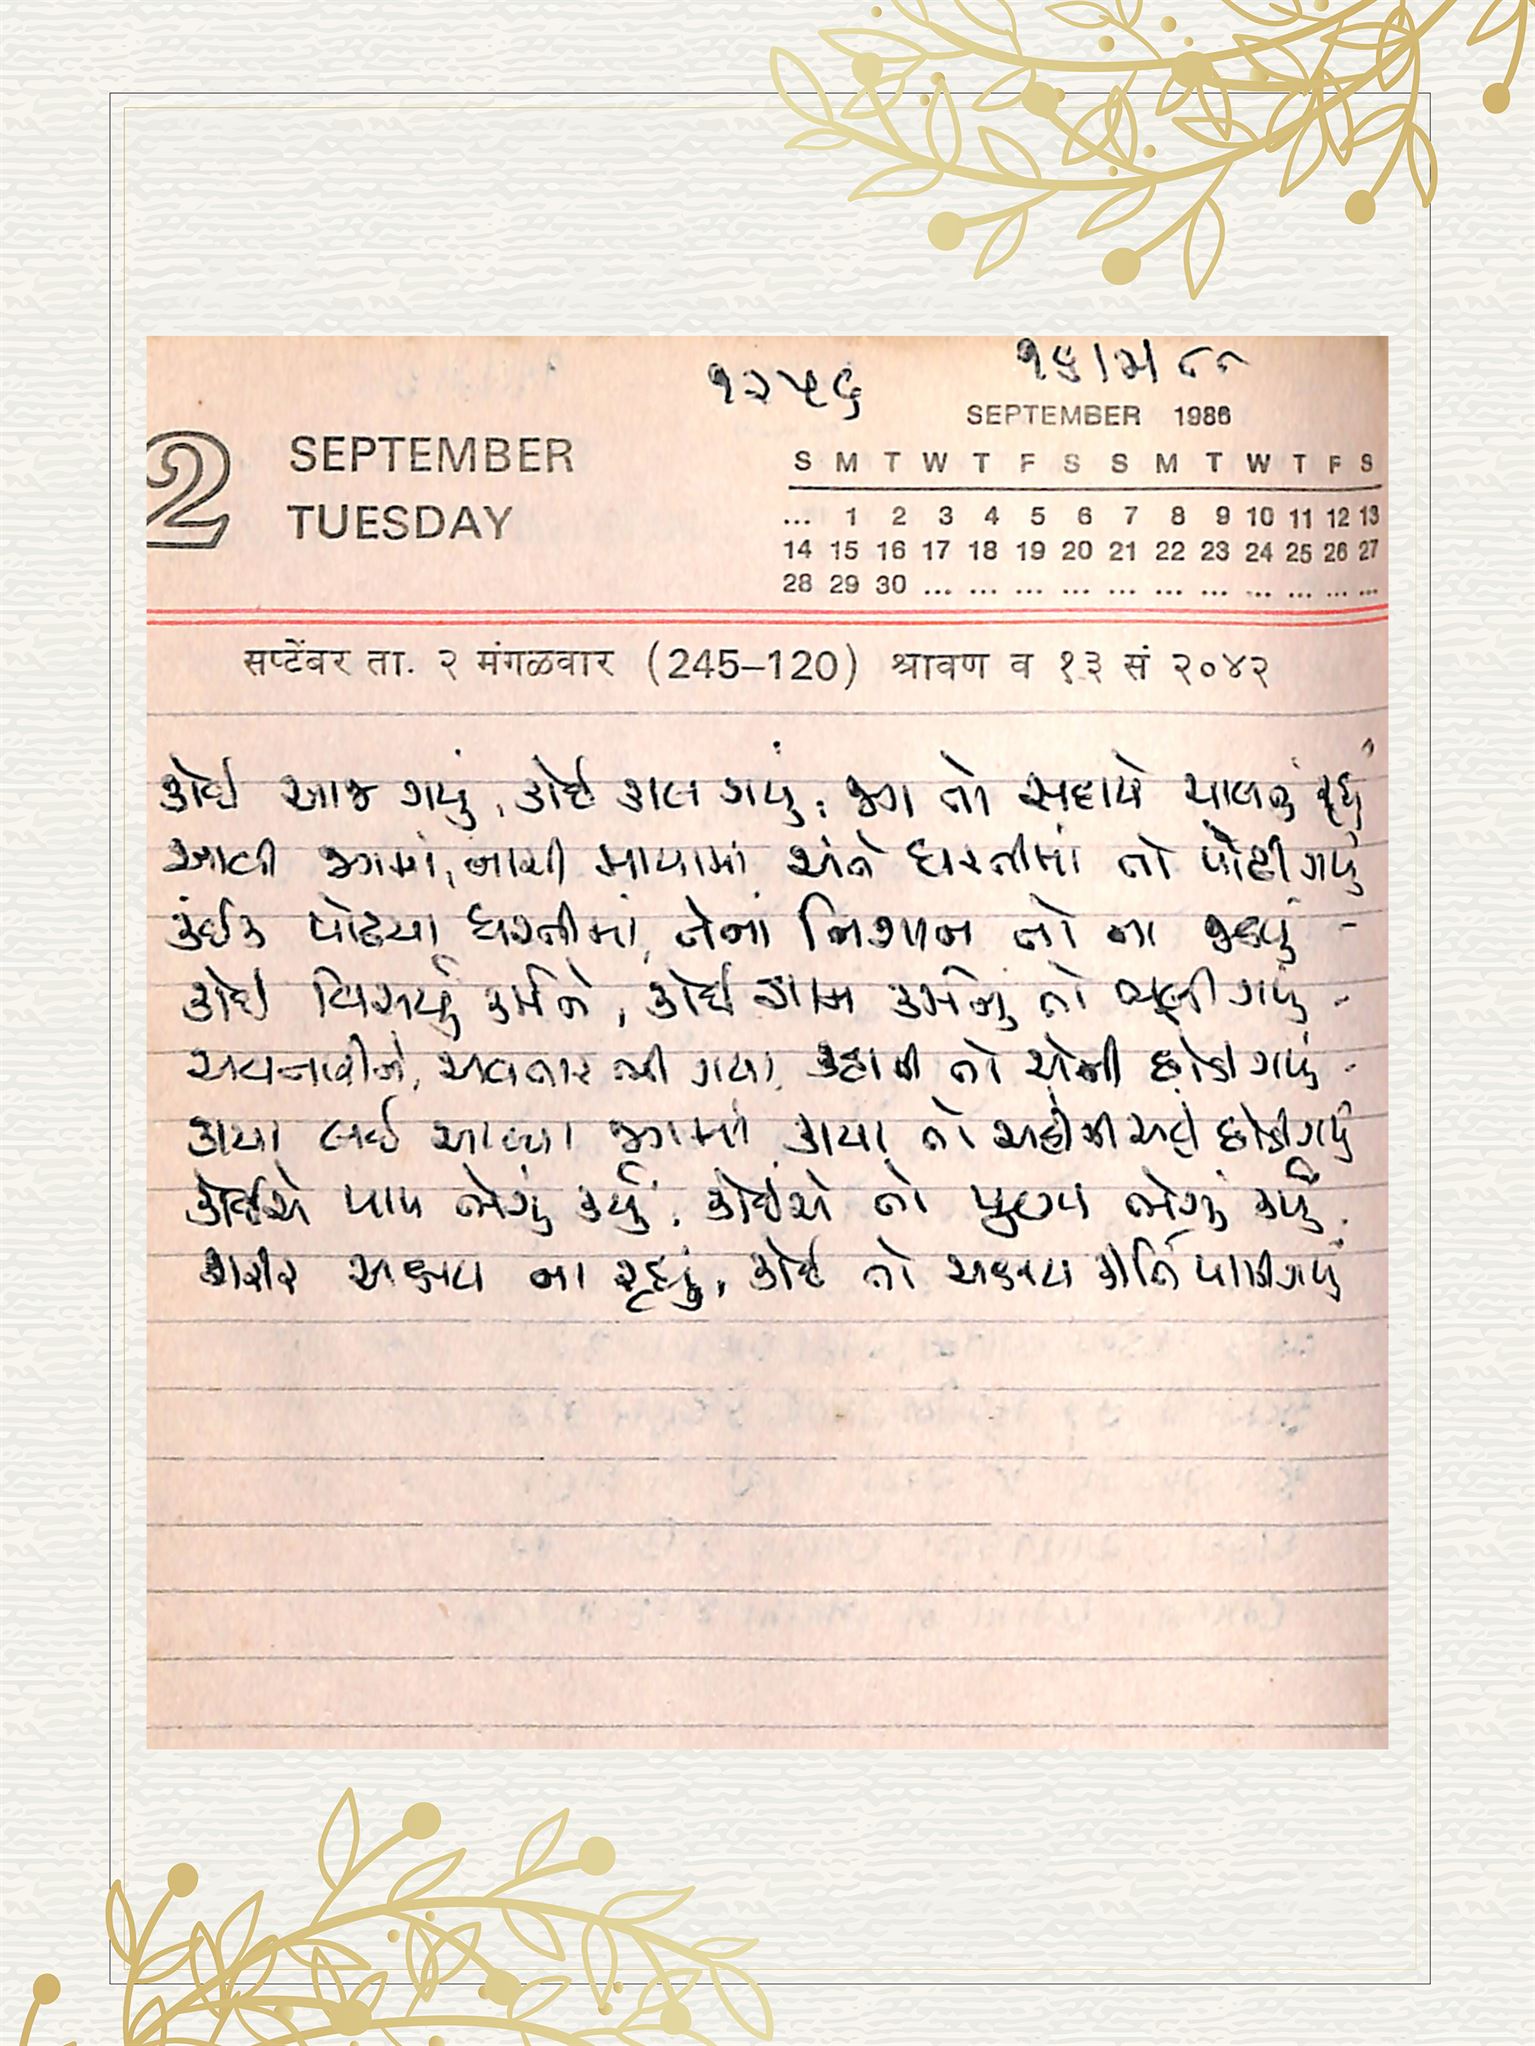 ૧૨૫૬
SEPTEMBER 1986
2 SEPTEMBER
TUESDAY
S M T W T F S S M T W T F S
... 1 2 3 4 5 6 7 8 9 10 11 12 13
14 15 16 17 18 19 20 21 22 23 24 25 26 27
28 29 30 ... ... ... ... ... ... ... ... ... ... ...
सप्टेंबर ता. २ मंगळवार (245–120) श्रावण व १३ सं २०४२
કોઈ આજ ગયું, કોઈ કાલ ગયું, જગ તો સદાયે ચાલતું રહ્યું
આવી જગમાં, નાચી માયામાં અંતે ધરતીમાં તો પોઢી ગયું
કંઈક પોઢયા ધરતીમાં, તેનાં નિશાન તો ના જડયું -
કોઈ વિસર્યું કર્મને, કોઈ કામ કર્મનું તો ભૂલી ગયું -
અવતારીને, અવતાર ગયા, કહાની તો એની છોડી ગયું -
કાયા લઈ આવ્યા જગમાં કાયા તો અહીંની અહીં છોડી ગયું
કોઈએ પાપ ભેગું કર્યું, કોઈએ તો પુણ્ય ભેગું કર્યું.
શરીર અક્ષય ના રહ્યું, કોઈ તો અક્ષય કીર્તિ પામી ગયું